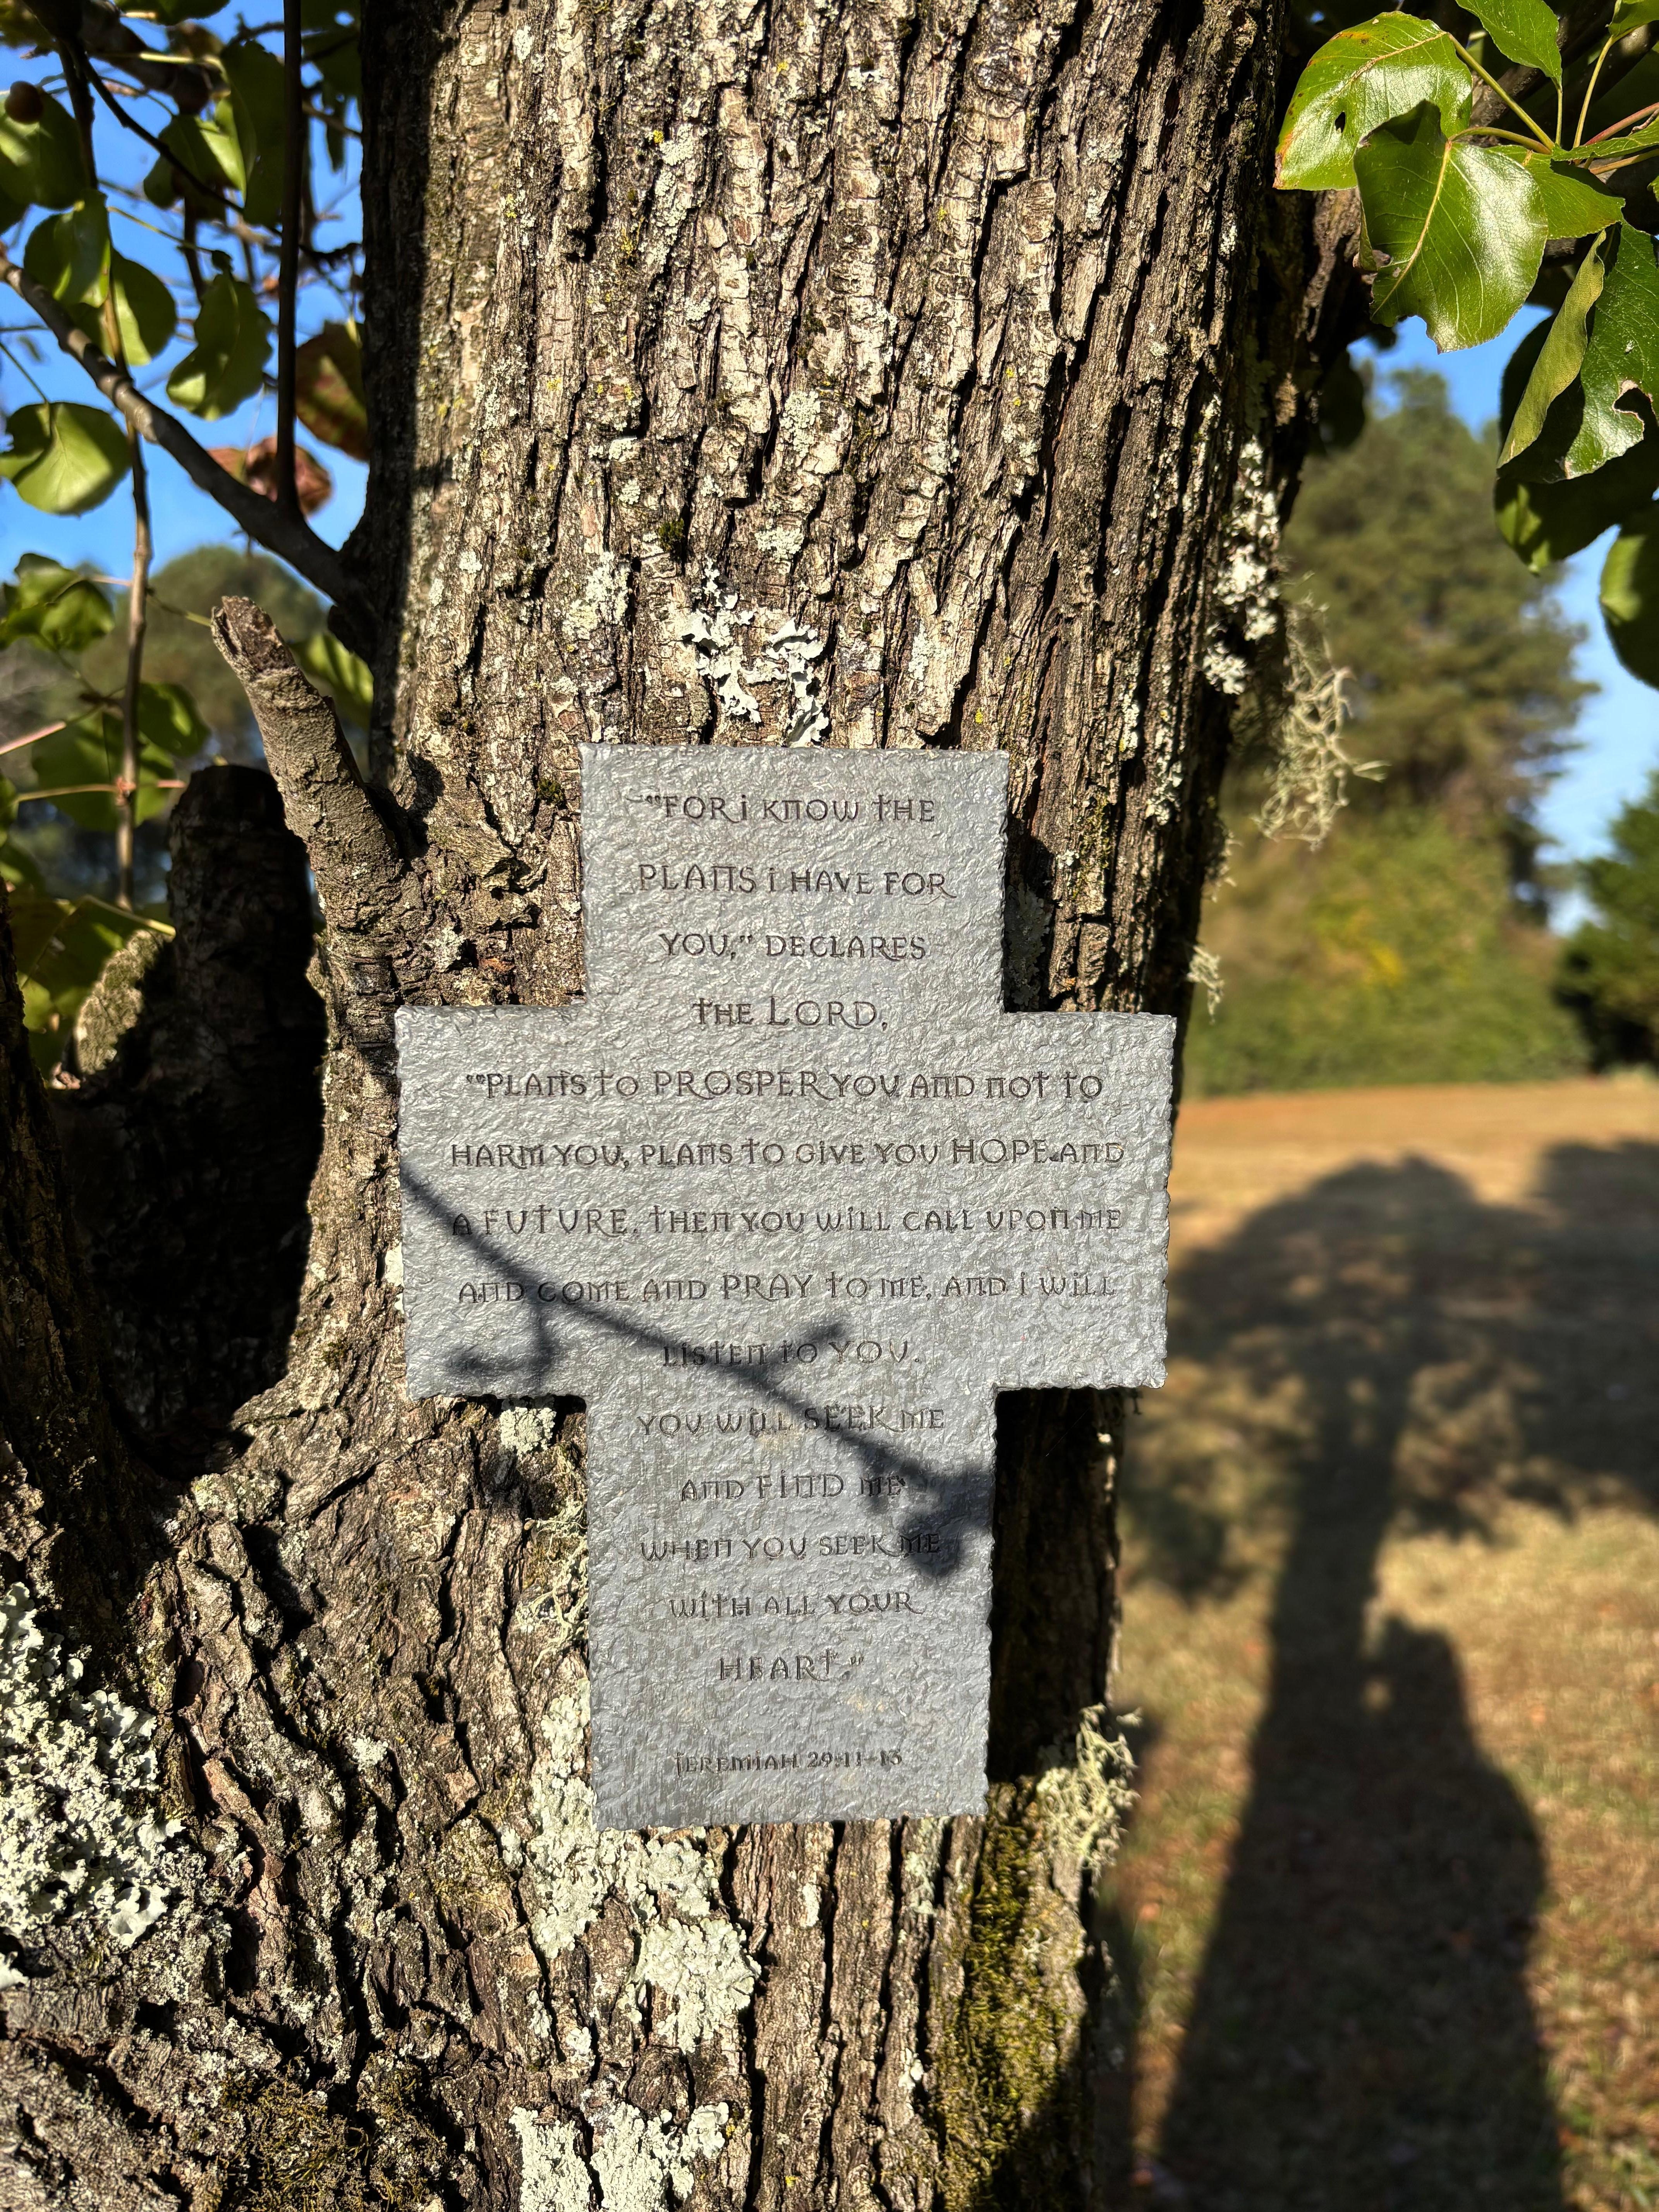 "FOR i KNOW THE
PLANS i HAVE FOR
YOU," DECLARES
THE LORD,
""PLANS TO PROSPER YOU AND NOT TO
HARM YOU, PLANS TO GIVE YOU HOPE AND
A FUTURE. THEN YOU WILL CALL UPON ME
AND COME AND PRAY TO ME, AND i WILL
LISTEN TO YOU.
YOU WILL SEEK ME
AND FIND ME
WHEN YOU SEEK ME
WITH ALL YOUR
HEART."
JEREMIAH 29:11-13